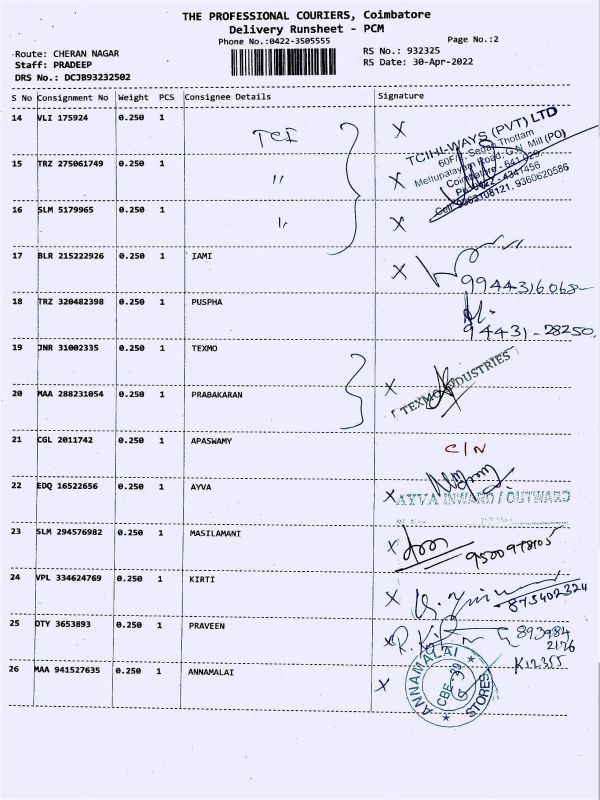 THE PROFESSIONAL COURIERS, Coimbatore
Delivery Runsheet - PCM
Phone No.:0422-3505555
Page No.:2
Route: CHERAN NAGAR
RS No.: 932325
Staff: PRADEEP
RS Date: 30-Apr-2022
DRS No.: DCJB93232502
S No Consignment No Weight PCS Consignee Details Signature
14 VLI 175924 0.250 1 TCI X
TCIHI-WAYS (PVT) LTD
60F/2, Thottam
Mettupalayam Road, G.N. Mill (PO)
Coimbatore - 641 029.
Ph: 0422 - 4341456
Cell: 9363108121, 9360620586
15 TRZ 275061749 0.250 1 " X
16 SLM 5179965 0.250 1 " X
17 BLR 215222926 0.250 1 IAMI X
18 TRZ 320482398 0.250 1 PUSPHA
94431-28250
19 JNR 31002335 0.250 1 TEXMO
TEXMO INDUSTRIES
20 MAA 288231054 0.250 1 PRABAKARAN X
21 CGL 2011742 0.250 1 APASWAMY C/N
22 EDQ 16522656 0.250 1 AYVA X
AYVA INWARD / OUTWARD
23 SLM 294576982 0.250 1 MASILAMANI X
24 VPL 334624769 0.250 1 KIRTI X
875402324
25 DTY 3653893 0.250 1 PRAVEEN X
893984
2126
K12355
26 MAA 941527635 0.250 1 ANNAMALAI X
ANNAMALAI STORES
CBE-39